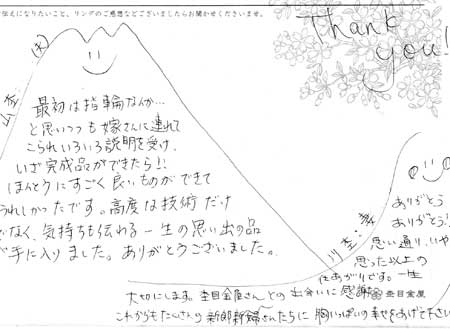 伝えになりたいこと、リングのご感想などございましたらお聞かせくださいませ。
Thank
you!
最初は指輪なんか…
と思いつつも嫁さんに連れて
こられいろいろ説明を受け、
いざ完成品ができたら!!
ほんとうにすごく良いものができて
うれしかったです。高度な技術だけ
でなく、気持ちも伝わる一生の思い出の品
が手に入りました。ありがとうございました。
ありがとう
ありがとう!
思い通り、いや
思った以上の
仕あがりです。一生
大切にします。杢目金屋さんとの出会いに感謝
これからもたくさんの新郎新婦さんたちに胸いっぱいの幸せをあげて下さい
杢目金屋